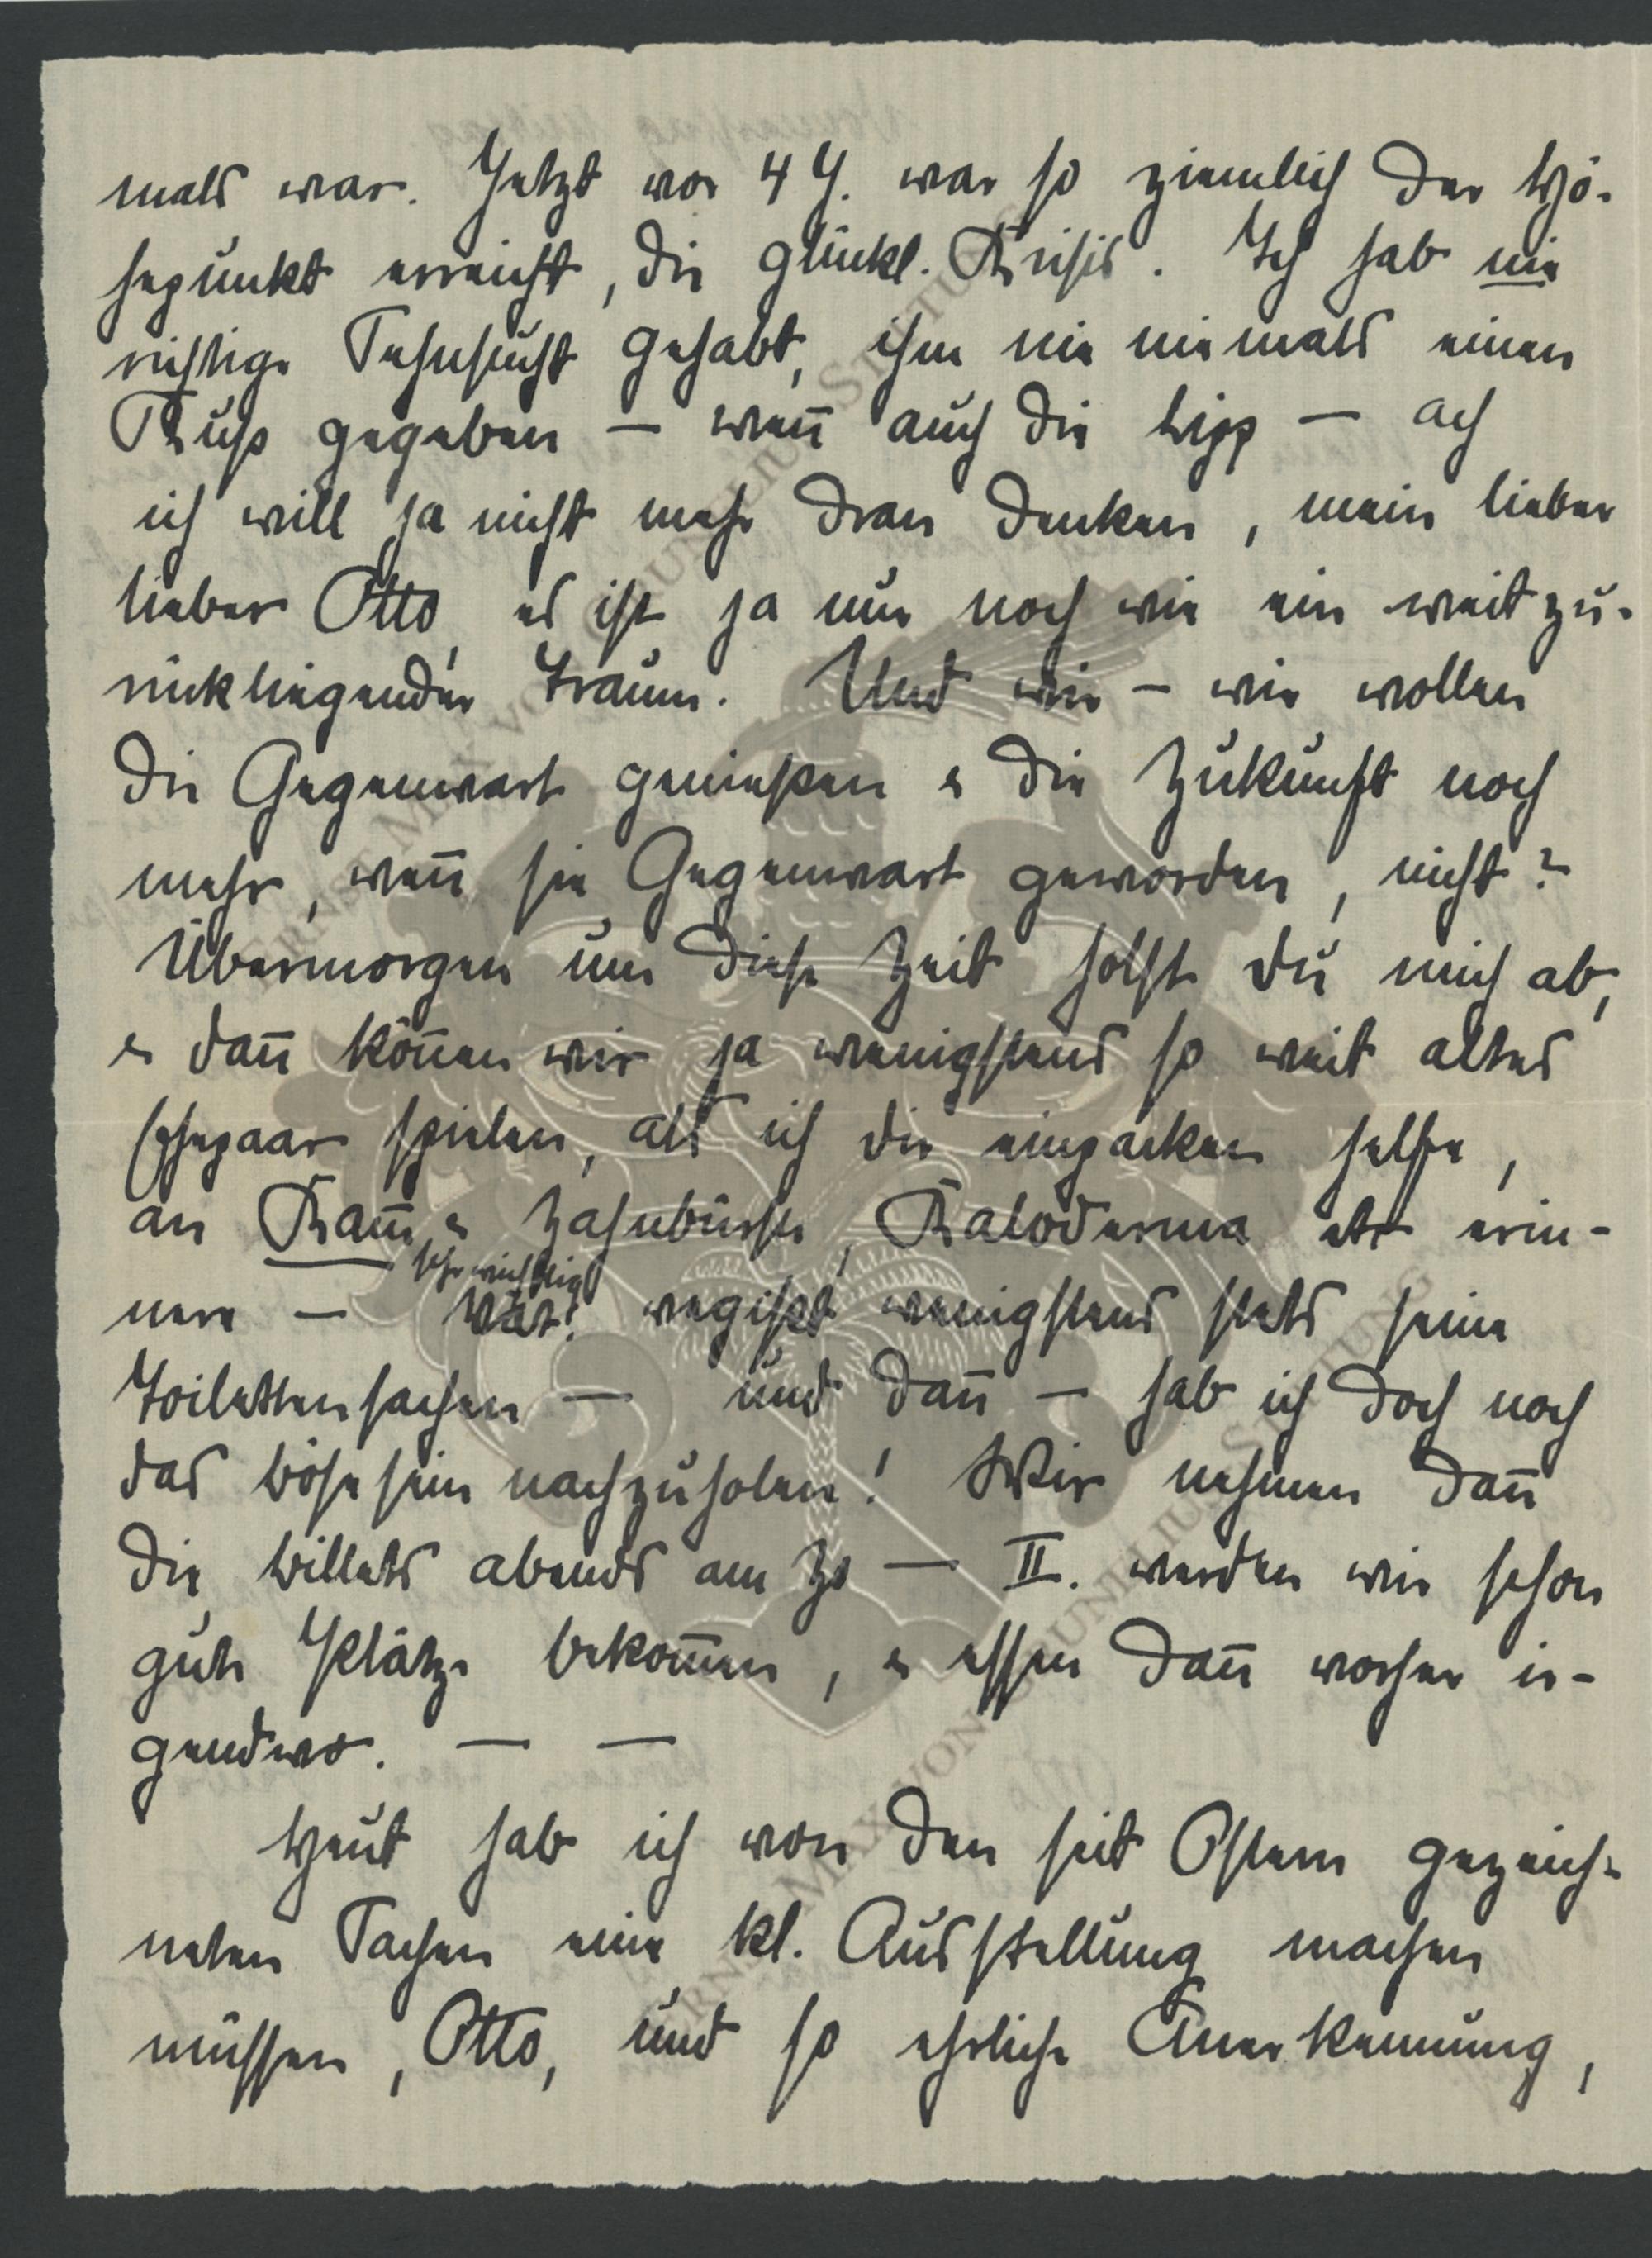 mals war. Jetzt vor 4 J. war so ziemlich der Hö-
hepunkt erreicht, die glückl. Krisis. Ich hab nie
richtige Sehnsucht gehabt, ihm nie niemals einen
Kuss gegeben — wenn auch die Lipp — ach
ich will ja nicht mehr dran denken, mein lieber
lieber Otto, es ist ja nur noch wie ein weit zu-
rückliegender Traum. Und wir — wir wollen
die Gegenwart genießen & die Zukunft noch
mehr, wenn sie Gegenwart geworden, nicht?
Übermorgen um diese Zeit holst du mich ab,
& dann können wir ja wenigstens so weit altes
Ehepaar spielen, als ich dir einpacken helfe,
an Kamm & Zahnbürste, Kaloderma etc erin-
sehr wichtig
nere — Vat. vergißt wenigstens stets seine
Toilettensachen — und dann — hab ich doch noch
das böse sein nachzuholen! Wir nehmen dann
die Billets abends am Zo — II. werden wir schon
gute Plätze bekommen, & essen dann vorher ir-
gendwo. — —
Heut hab ich von den seit Ostern gezeich-
neten Sachen eine kl. Ausstellung machen
müssen, Otto, und so ehrliche Anerkennung,
ERNST MAX VON GRUNELIUS STIFTUNG
ERNST MAX VON GRUNELIUS STIFTUNG